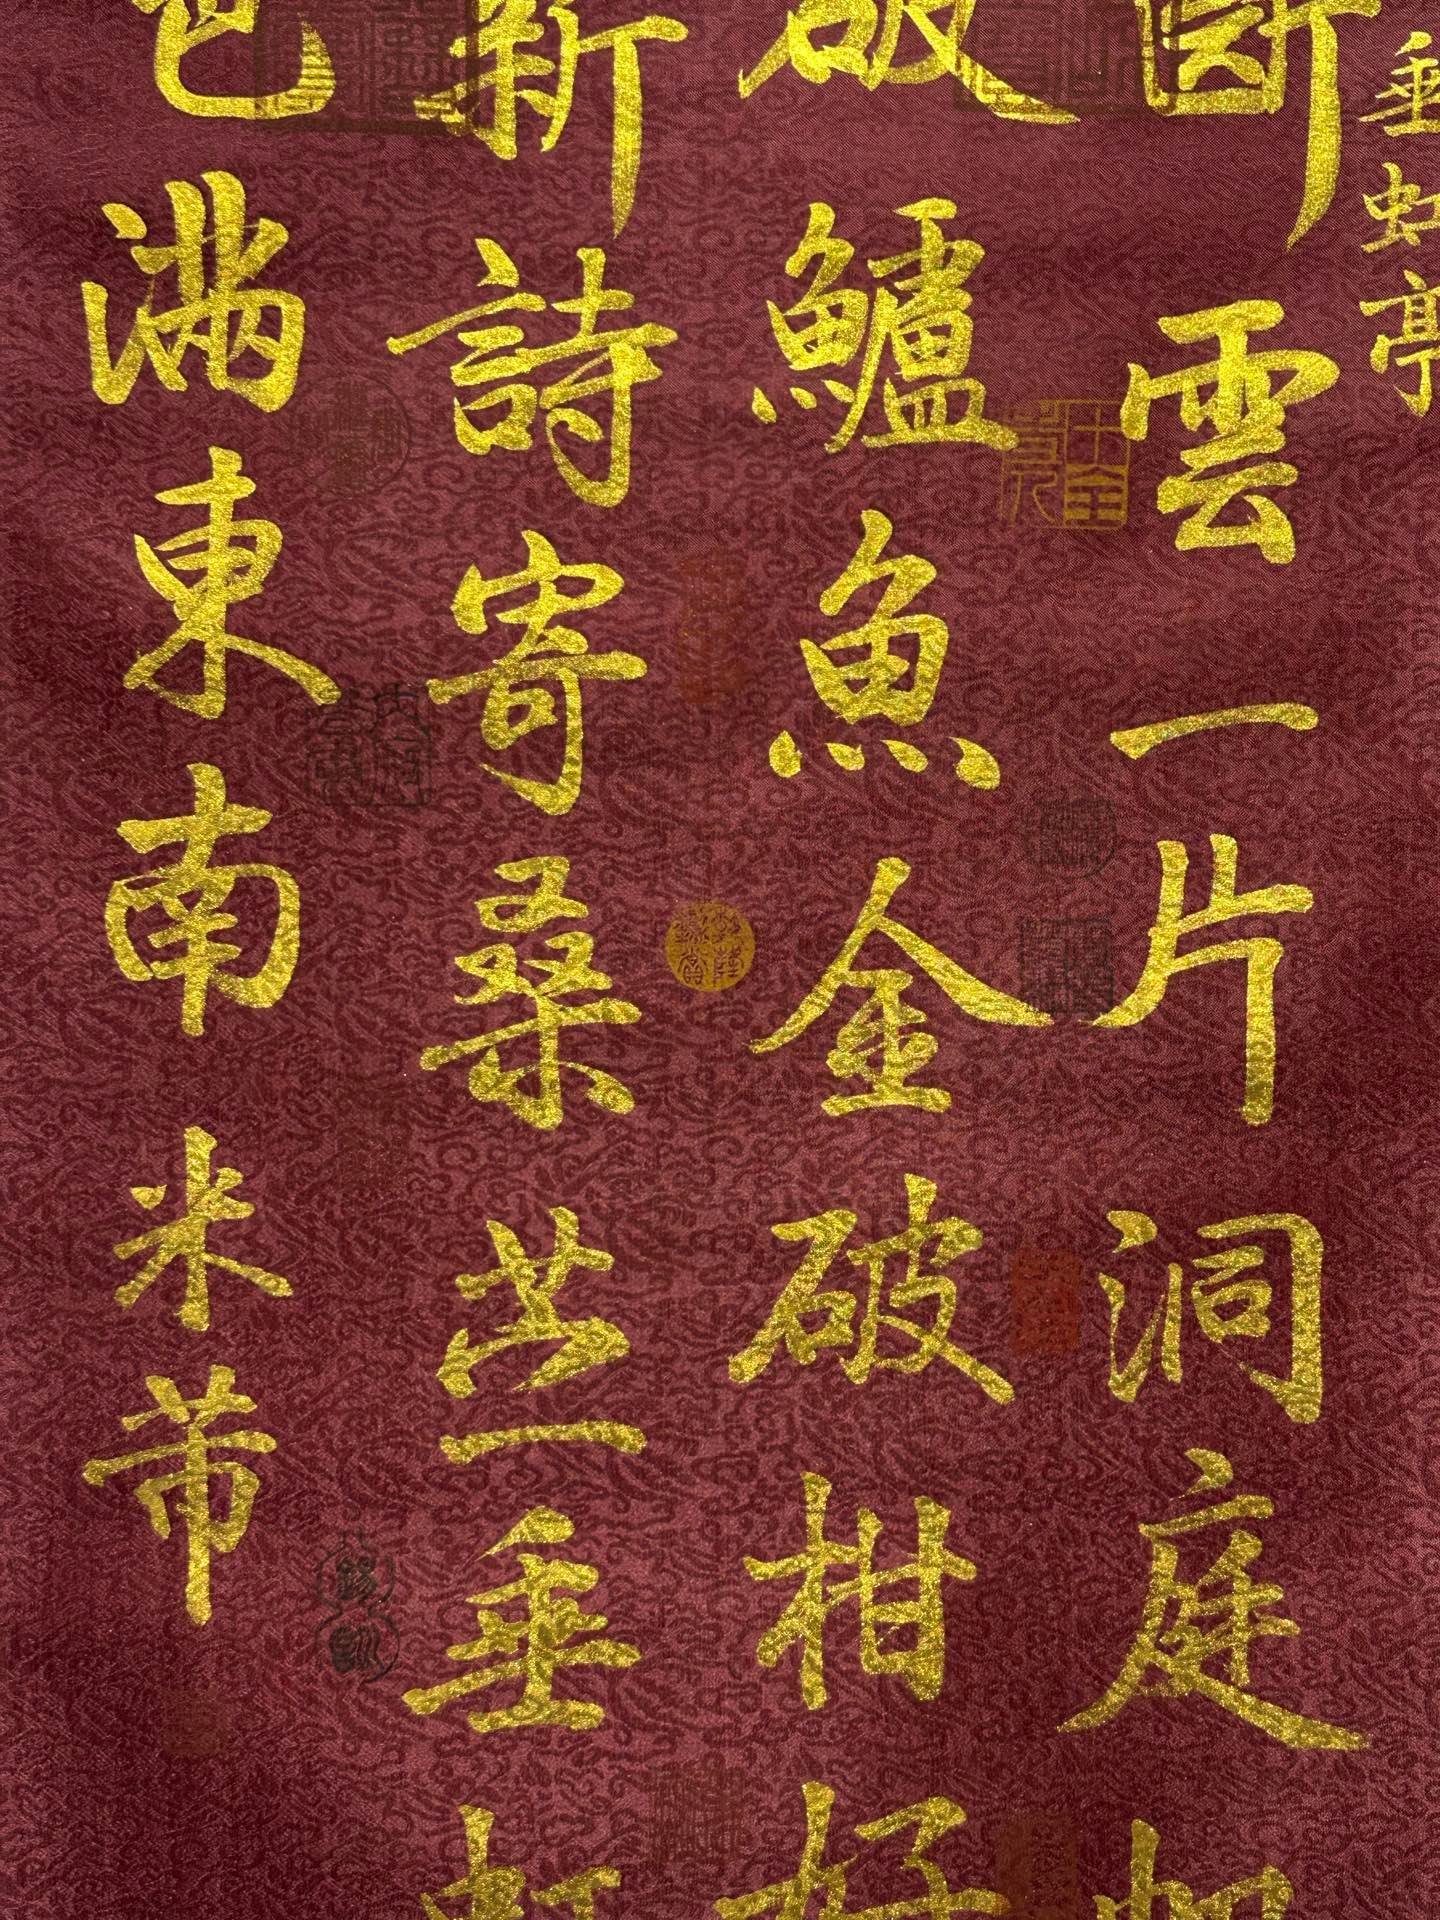 垂虹亭
斷雲一片洞庭帆
破鱸魚金破柑好
新詩寄桑苎垂虹
色滿東南米芾